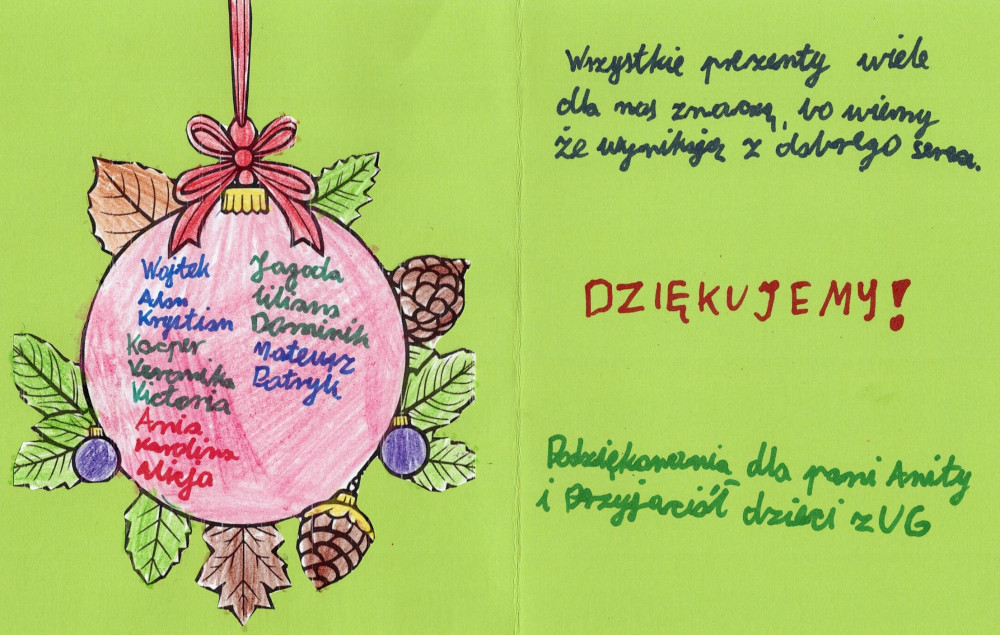 Wojtek
Alan
Krystian
Kacper
Weronika
Victoria
Ania
Karolina
Alicja
Jagoda
Liliana
Dominik
Mateusz
Patryk
Wszystkie prezenty wiele
dla nas znaczą, bo wiemy
że wynikają z dobrego serca.
DZIĘKUJEMY!
Podziękowania dla pani Anity
i Przyjaciół dzieci z UG